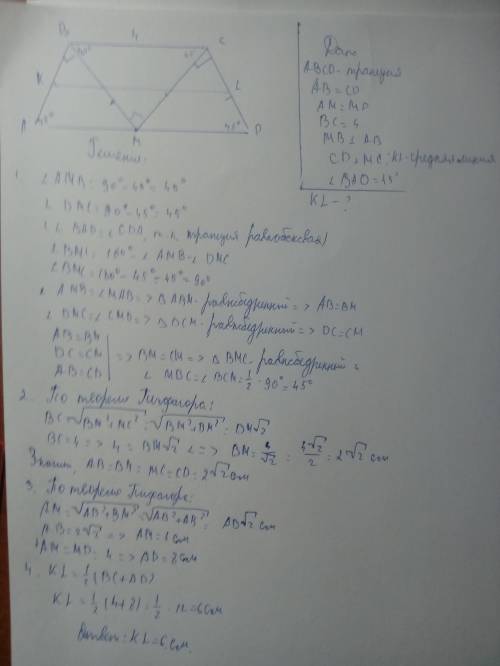 B
4
C
90°
45°
K
L
A
45°
M
45°
D
Дано
ABCD - трапеция
AB = CD
AM = MD
BC = 4
MB ⊥ AB
CD ⊥ MC; KL - средняя линия
∠ BAD = 45°
KL - ?
Решение.
1. ∠ AMB = 90° - 45° = 45°
∠ DMC = 90° - 45° = 45°
(∠ BAD = ∠ CDA, т. к. трапеция равнобокая)
∠ BMC = 180° - ∠ AMB - ∠ DMC
∠ BMC = 180° - 45° - 45° = 90°
∠ AMB = ∠ MAB => Δ ABM - равнобедренный => AB = BM
∠ DMC = ∠ CMD => Δ DCM - равнобедренный => DC = CM
AB = BM
DC = CM
AB = CD
=> BM = CM => Δ BMC равнобедренный =
∠ MBC = ∠ BCM = 1/2 · 90° = 45°
2. По теореме Пифагора:
BC = √BM² + MC² = √BM² + BM² = BM√2
BC = 4 => 4 = BM√2 => BM = 4/√2 = 4√2/2 = 2√2 см
Значит, AB = BM = MC = CD = 2√2 см
3. По теореме Пифагора:
AM = √AB² + BM² = √AB² + AB² = AB√2 см
AB = 2√2 => AM = 4 см
AM = MD = 4 => AD = 8 см
4. KL = 1/2 (BC + AD)
KL = 1/2 (4 + 8) = 1/2 · 12 = 6 см
Ответ: KL = 6 см.